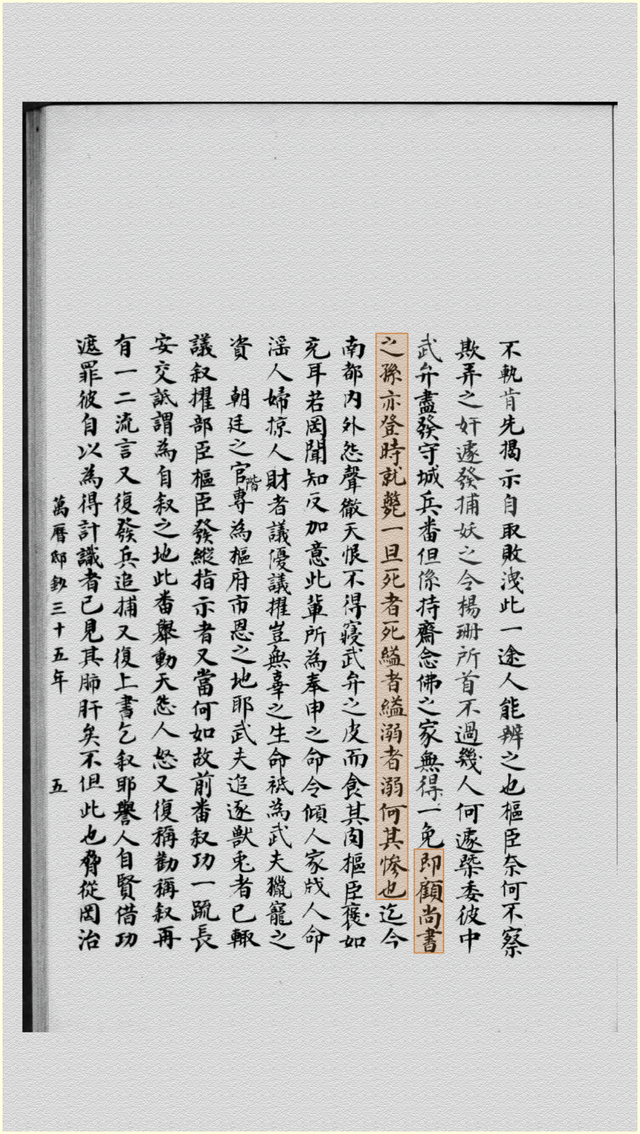 不軌肯先揭示自取敗洩此一途人能辨之也樞臣奈何不察
欺弄之奸遽發捕妖之令楊珊所首不過幾人何遽槩委彼中
武弁盡發守城兵番但係持齋念佛之家無得一免即顧尚書
之孫亦登時就斃一旦死者死縊者縊溺者溺何其慘也迄今
南都內外怨聲徹天恨不得寢武弁之皮而食其肉樞臣褎如
充耳若罔聞知反加意此輩所為奉申之命令傾人家戕人命
淫人婦掠人財者議優議擢豈無辜之生命祗為武夫獵寵之
資　朝廷之官階專為樞府市恩之地耶武夫追逐獸兎者已輙
議叙擢部臣樞臣發縱指示者又當何如故前番叙功一䟽長
安交詆謂為自叙之地此番舉動天怒人怒又復稱勸稱叙再
有一二流言又復發兵追捕又復上書乞叙耶譽人自賢借功
遮罪彼自以為得計識者已見其肺肝矣不但此也脅從罔治
萬曆邸鈔三十五年　五